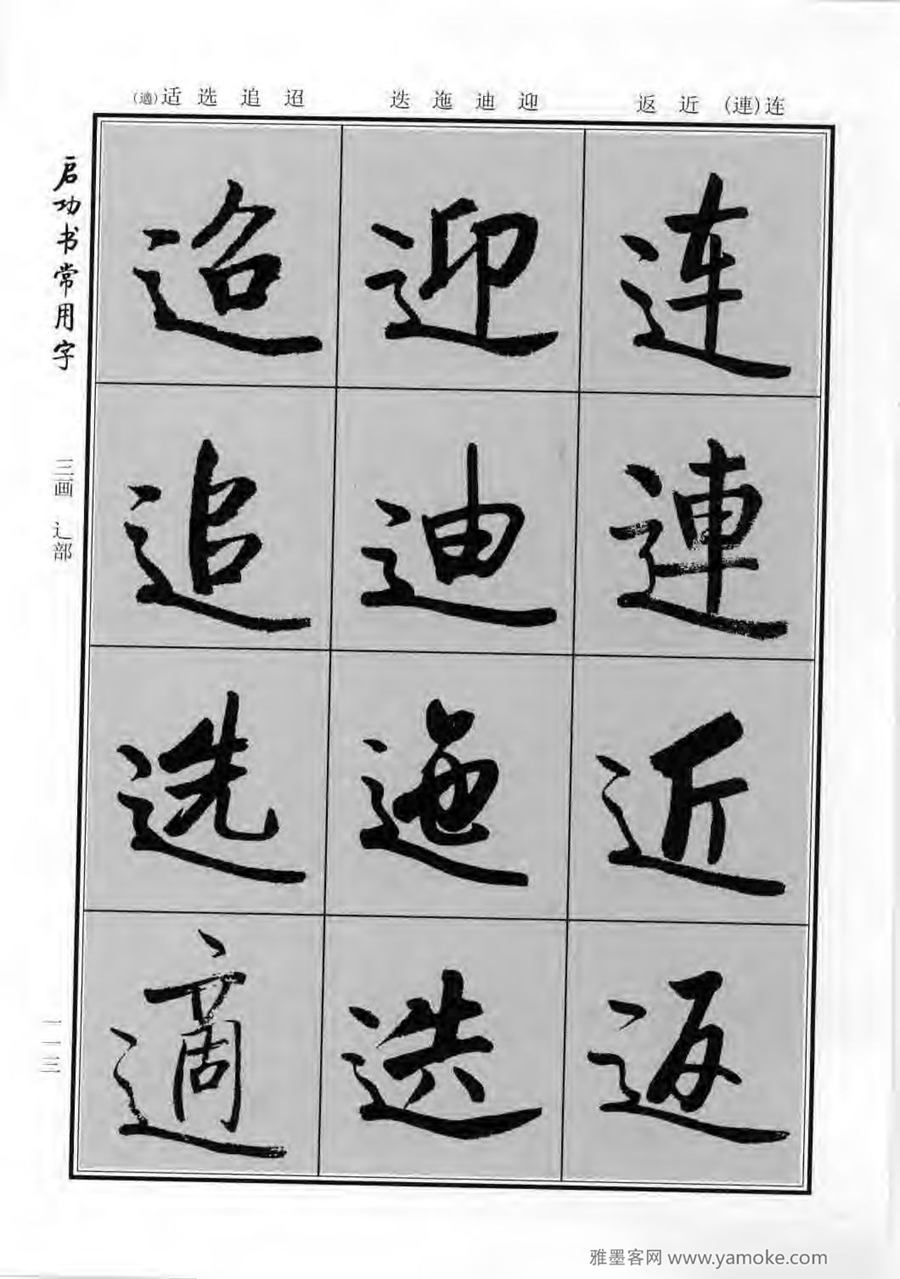 连(連) 近 返 迎 迪 迤 迭 迢 追 选 适(適)
连連近返
迎迪迤迭
迢追选適
启功书常用字
三画 辶部
一一三
雅墨客网 www.yamoke.com